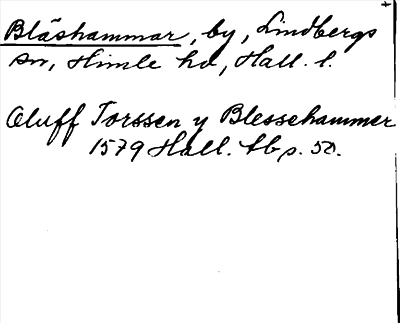 Blåshammar, by, Lindbergs
sn, Himle hd, Hall. l.
Oluff Torssen y Blessehammer
1579 Hall. tb s. 50.